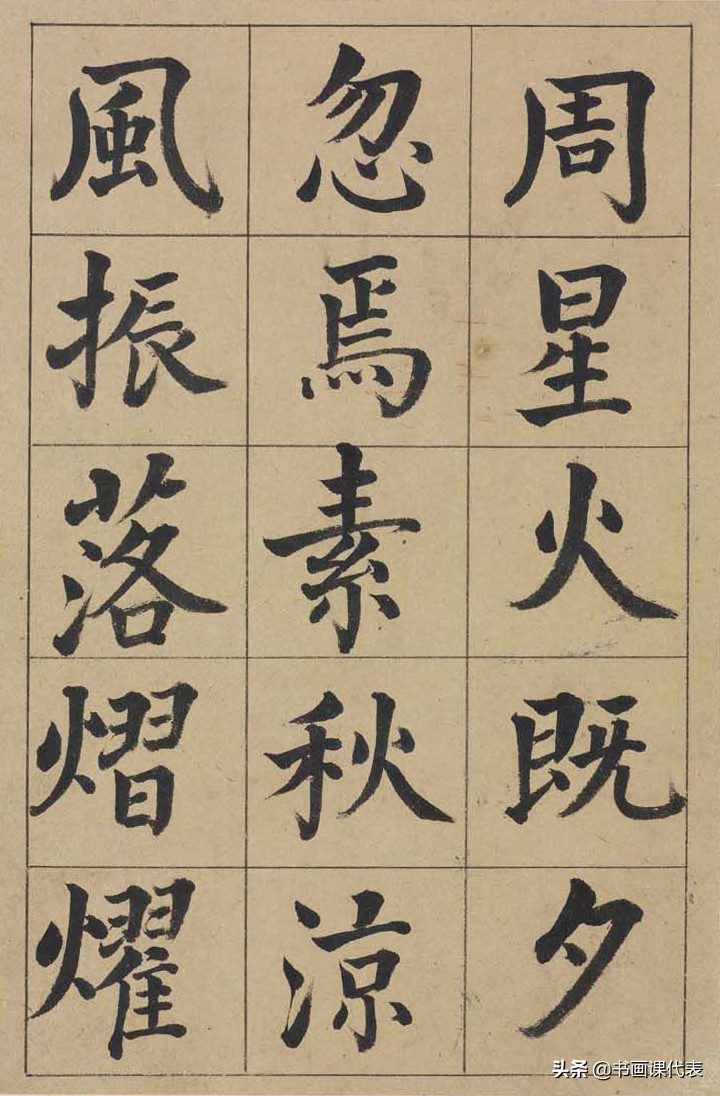 周星火既夕
忽焉素秋涼
風振落熠燿
头条 @书画课代表